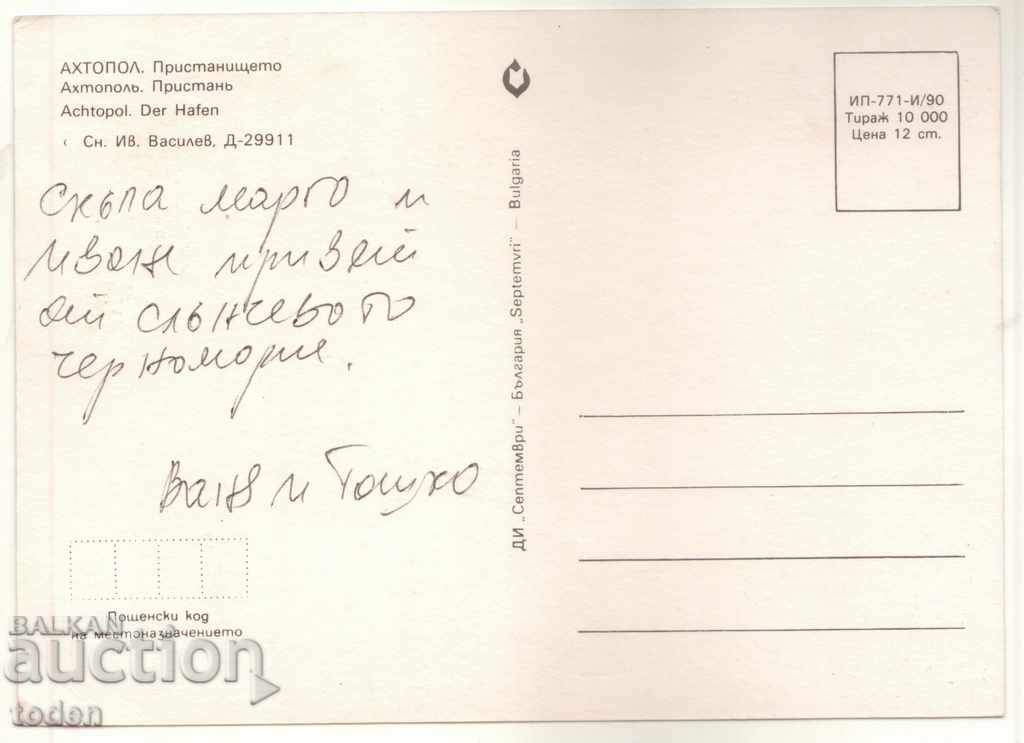 АХТОПОЛ. Пристанището
Ахтополь. Пристань
Achtopol. Der Hafen
Сн. Ив. Василев, Д-29911
Скъпа Марго и
Иван привет
от слънчевото
черноморие.
и Тошко
Пощенски код
на местоназначението
ДИ „Септември" – България „Septemvri" – Bulgaria
ИП-771-И/90
Тираж 10 000
Цена 12 ст.
BALKAN
auction
toden